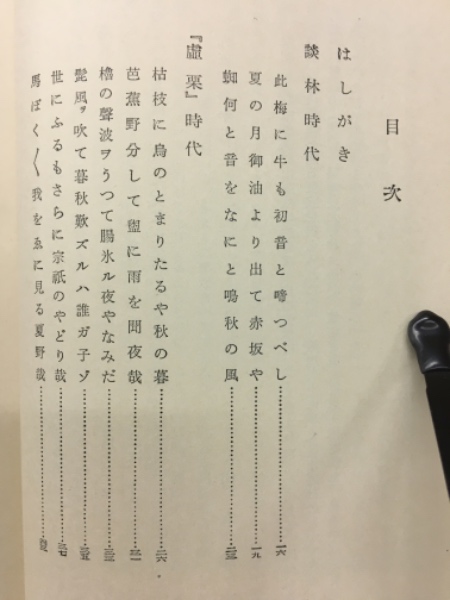 目次
はしがき
談林時代
此梅に牛も初音と啼つべし……一六
夏の月御油より出て赤坂や……一九
蜘何と音をなにと鳴秋の風……二三
『虚栗』時代
枯枝に烏のとまりたるや秋の暮……二六
芭蕉野分して盥に雨を聞夜哉……三一
櫓の聲波ヲうつて腸氷ル夜やなみだ……三三
髭風ヲ吹て暮秋歎ズルハ誰ガ子ゾ……三五
世にふるもさらに宗祇のやどり哉……三七
馬ぼく〱我をゑに見る夏野哉……